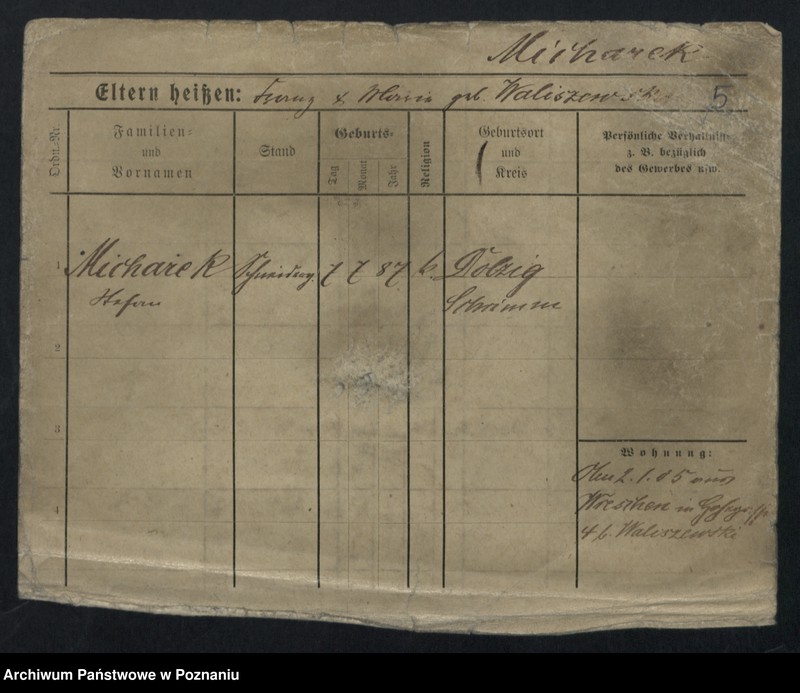 Micharek
Eltern heißen: Franz & Maria geb. Waliszewska 5
Ordn.-Nr.
Familien-
und
Vornamen
Stand
Geburts-
Tag
Monat
Jahr
Religion
Geburtsort
und
Kreis
Persönliche Verhältniss
z. B. bezüglich
des Gewerbes usw.
1 Micharek 7 7 87 k. Dolzig
Stefan Schrimm
2
3
4
Wohnung:
2.1.05
Wreschen in
4 b. Waliszewski
Archiwum Państwowe w Poznaniu